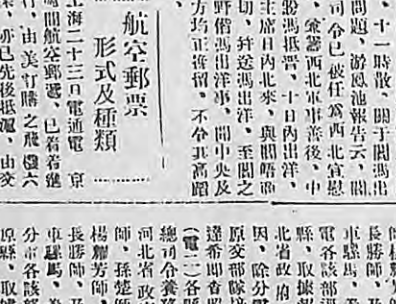 、十一時散、關于閻馮出
問題、游鳳池報告云、閻
司令已被任爲西北宣慰
、兼署西北軍事善後、中
馮抵晉、十日內出洋、
主席日內北來、與閻晤商
切、幷送馮出洋、至閻之
野偕馮出洋寧、閻中央及
方均正挽留、不令其高蹈
航空郵票
形式及種類
上海二十三日電通電 京
間航空郵遞、已着着進
行、由美訂購之飛機六
、亦已先後抵滬、由交
長勝師、
車騾馬、
電各該部
縣、取據
北省政府
因、除分
原交部隊
達希卽查照
（電二）各縣
總司令養
河北省政
師、孫楚師
楊耀芳師、
長勝師、
車騾馬、
分市各該部
原縣、取